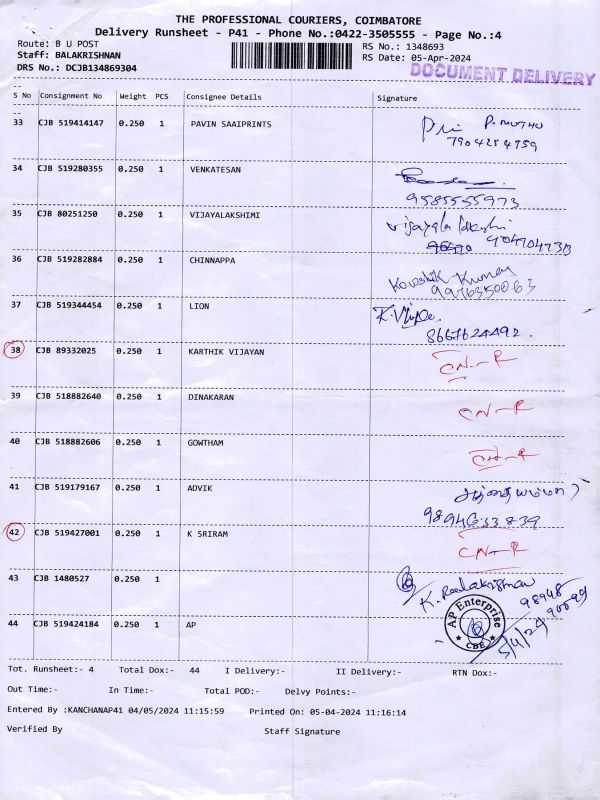 THE PROFESSIONAL COURIERS, COIMBATORE
Delivery Runsheet - P41 - Phone No.:0422-3505555 - Page No.:4
Route: B U POST
RS No.: 1348693
Staff: BALAKRISHNAN
RS Date: 05-Apr-2024
DRS No.: DCJB134869304
DOCUMENT DELIVERY
S No Consignment No Weight PCS Consignee Details Signature
33 CJB 519414147 0.250 1 PAVIN SAAIPRINTS P. MUTHU
7904254759
34 CJB 519280355 0.250 1 VENKATESAN
9585555973
35 CJB 80251250 0.250 1 VIJAYALAKSHIMI Vijayala lakshi
36 CJB 519282884 0.250 1 CHINNAPPA Kowshik Kumar
9976350063
37 CJB 519344454 0.250 1 LION
8667624492.
38 CJB 89332025 0.250 1 KARTHIK VIJAYAN CN-R
39 CJB 518882640 0.250 1 DINAKARAN CN-R
40 CJB 518882606 0.250 1 GOWTHAM CN-R
41 CJB 519179167 0.250 1 ADVIK
9894633839
42 CJB 519427001 0.250 1 K SRIRAM CN-R
43 CJB 1480527 0.250 1 K. Baalakrishnan
98948
90099
44 CJB 519424184 0.250 1 AP AP Enterprise CBE
5/4/24
Tot. Runsheet:- 4 Total Dox:- 44 I Delivery:- II Delivery:- RTN Dox:-
Out Time:- In Time:- Total POD:- Delvy Points:-
Entered By :KANCHANAP41 04/05/2024 11:15:59 Printed On: 05-04-2024 11:16:14
Verified By Staff Signature